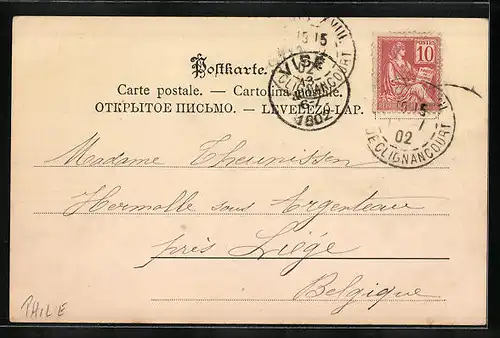 Postkarte.
Carte postale. — Cartolina postale.
ОТКРЫТОЕ ПИСЬМО. — LEVELEZÖ-LAP.
POSTES
10
XVIII
15
DE CLIGNANCOURT
02
VISÉ
1902
15
02
DE CLIGNANCOURT
Madame Theunissen
Hermalle sous Argenteau
près Liége
Belgique
PHILE